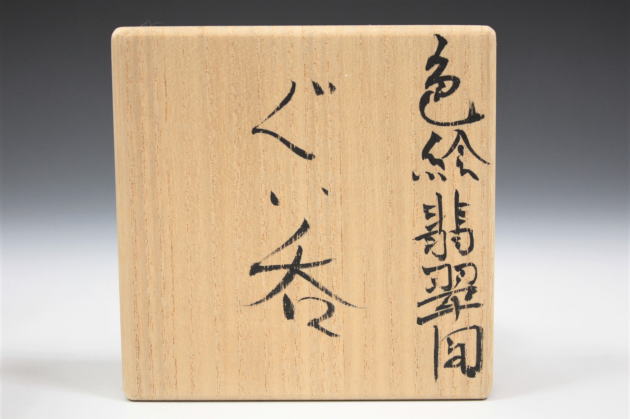 色絵翡翠図
ぐい呑